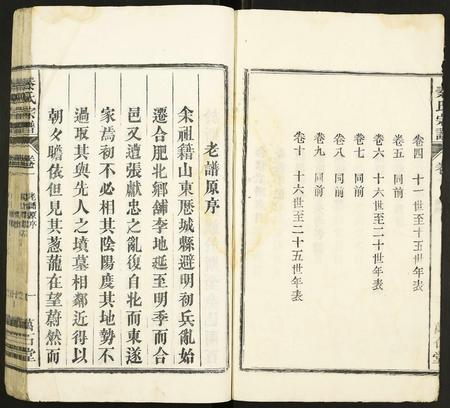 秦氏宗譜
卷四 十一世至十五世年表
卷五 同前
卷六 十六世至二十世年表
卷七 同前
卷八 同前
卷九 同前
卷十 十六世至二十五世年表
老譜原序
余祖籍山東歷城縣避明初兵亂始
遷合肥北鄉舖李地延至明季而合
邑又遭張獻忠之亂復自北而東遂
家焉初不必相其陰陽度其地勢不
過取其與先人之墳墓相鄰近得以
朝夕瞻依但見其葱蘢在望蔚然而
秦氏宗譜
卷
老譜原序
一
萬石堂